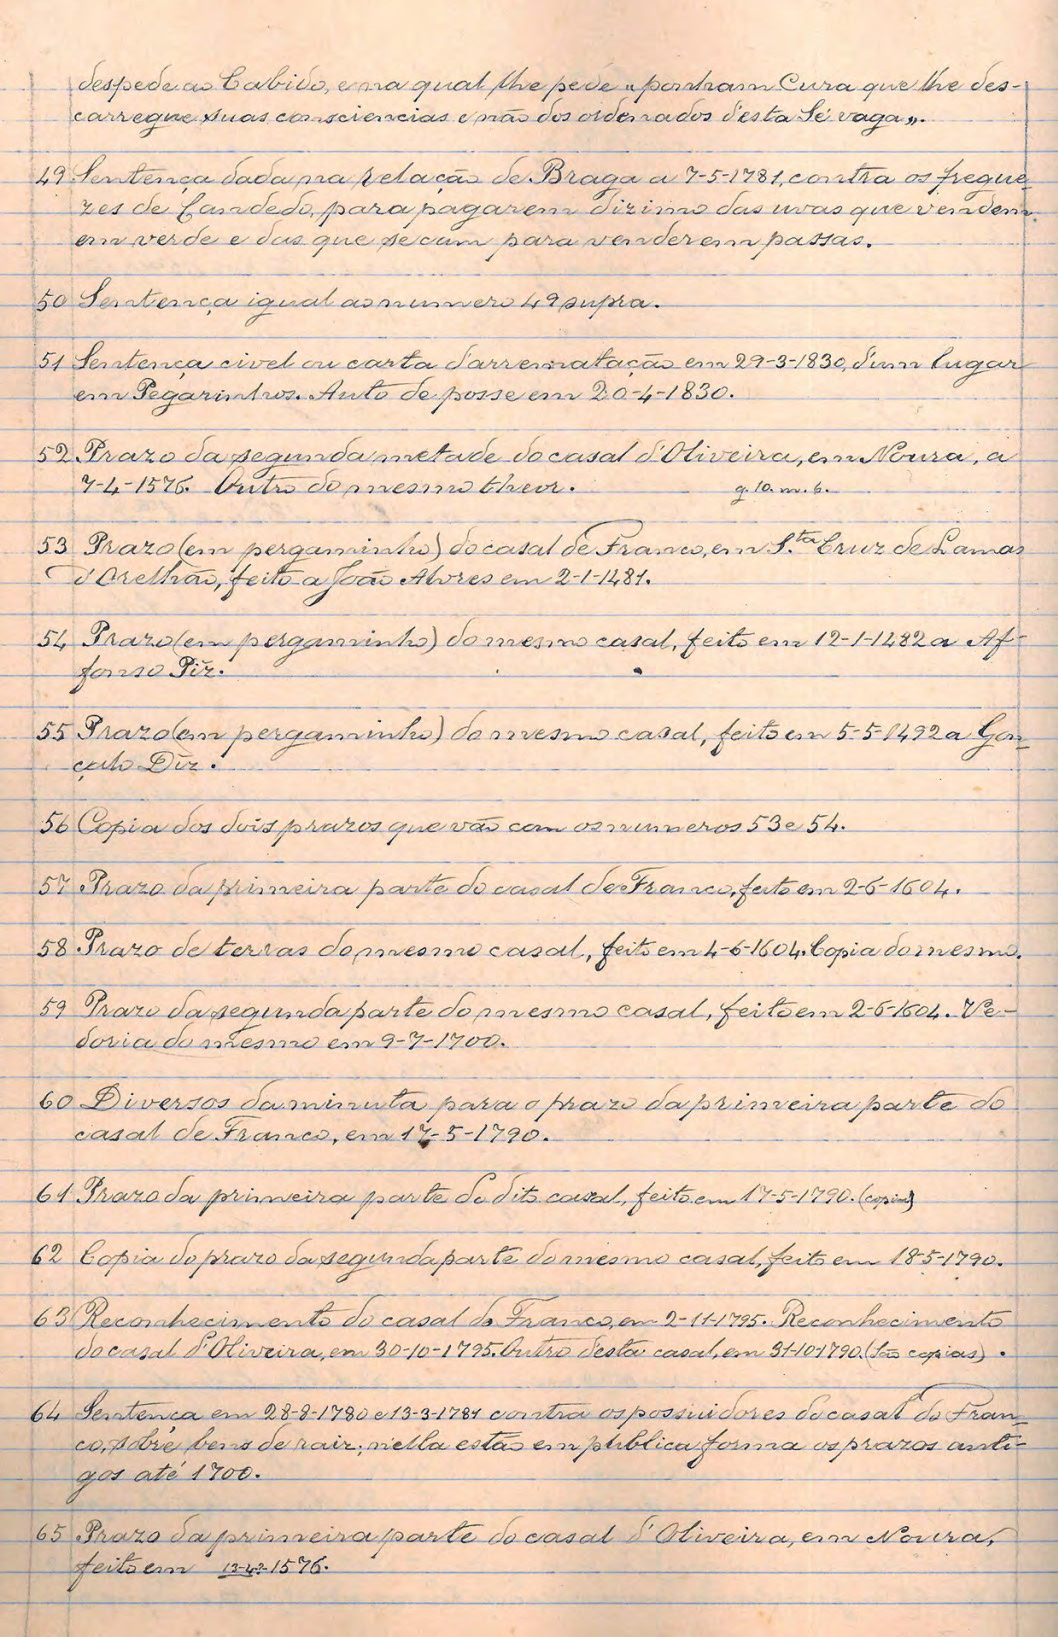 despede ao Cabido, e na qual lhe pede "ponham Cura que lhe des-
carregue suas consciencias e não dos ordenados d'esta Sé vaga".
49 Sentença dada na relação de Braga a 7-5-1781, contra os fregue-
zes de Candedo, para pagarem dizimo das uvas que vendem
em verde e das que secam para venderem passas.
50 Sentença igual ao numero 49 supra.
51 Sentença civel ou carta d'arrematação em 29-3-1830, d'um lugar
em Pegarinhos. Auto de posse em 20-4-1830.
52 Prazo da segunda metade do casal d'Oliveira, em Noura, a
7-4-1576. Outro do mesmo theor. g. 10. m. 6.
53 Prazo (em pergaminho) do casal de Franco, em S.ta Cruz de Lamas
d'Orelhão, feito a João Alvres em 2-1-1481.
54 Prazo (em pergaminho) do mesmo casal, feito em 12-1-1482 a Af-
fonso Piz.
55 Prazo (em pergaminho) do mesmo casal, feito em 5-5-1492 a Gon-
çalo Diz.
56 Copia dos dois prazos que vão com os numeros 53 e 54.
57 Prazo da primeira parte do casal de Franco, feito em 2-6-1604.
58 Prazo de terras do mesmo casal, feito em 4-6-1604. Copia do mesmo.
59 Prazo da segunda parte do mesmo casal, feito em 2-6-1604. Ve-
doria do mesmo em 9-7-1700.
60 Diversos da minuta para o prazo da primeira parte do
casal de Franco, em 17-5-1790.
61 Prazo da primeira parte do dito casal, feito em 17-5-1790. (copia)
62 Copia do prazo da segunda parte do mesmo casal, feito em 18-5-1790.
63 Reconhecimento do casal do Franco, em 2-11-1795. Reconhecimento
do casal d'Oliveira, em 30-10-1795. Outro d'esta casal, em 31-10-1790. (São copias).
64 Sentença em 28-8-1780 e 13-3-1781 contra os possuidores do casal do Fran-
co, sobre bens de raiz; n'ella estão em publica forma os prazos anti-
gos até 1700.
65 Prazo da primeira parte do casal d'Oliveira, em Noura,
feito em 1576.